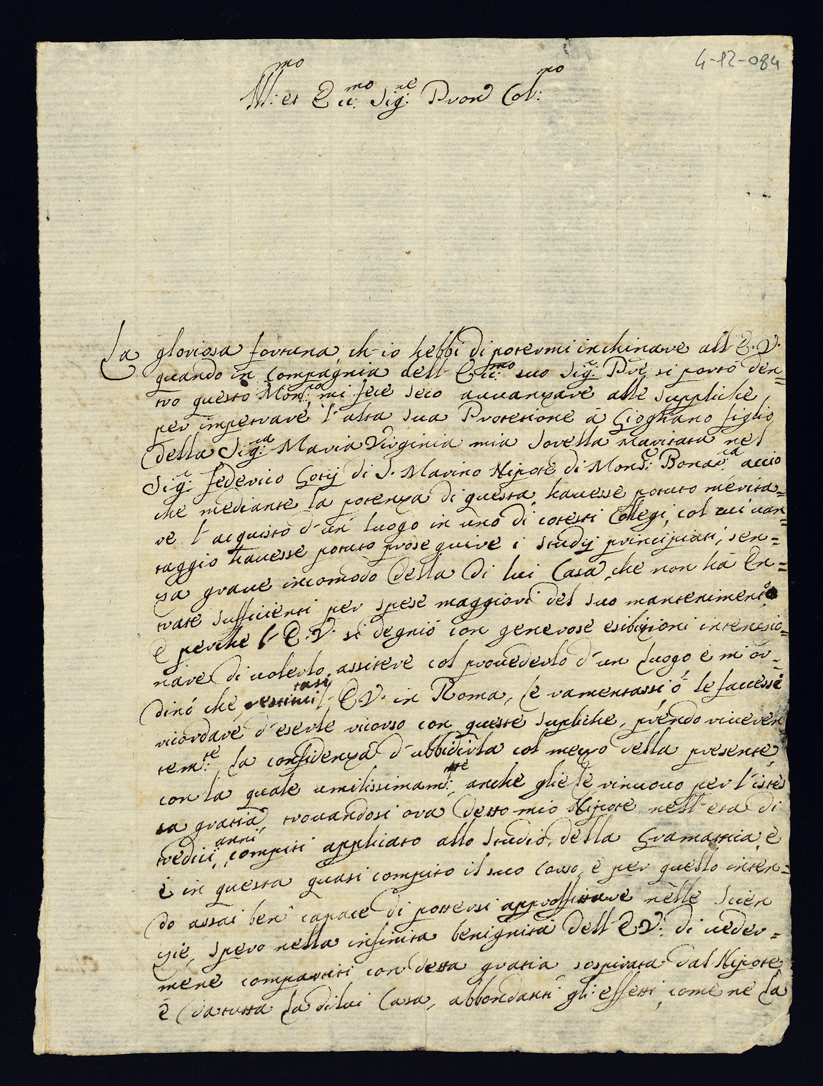 4-12-084
Ill:mo et Ecc:mo Sig:re Pron Col:mo
La gloriosa fortuna, ch'io hebbi di potermi inchinare all'E.V.
quando in compagnia dell'Ecc:mo suo Sig:r P're si portò den=
tro questo mi fece seco auuanzare alle suppliche
per impetrare l'alta sua Protetione à Giognano figlio
della Sig:ra Maria Virginia mia Sorella maritata nel
Sig:r Federico Gotij di S. Marino Nipote di Mons:r Bonau:ra acciò
che mediante la potenza di questa hauesse potuto merita=
re l'acquisto d'un luogo in uno di cotesti Collegi, col cui uan=
taggio hauesse potuto proseguire i studij principiati, sen=
za graue incomodo della di lui Casa, che non hà En=
trate sufficienti per spese maggiori del suo mantenimento
e perche l'E.V. si degniò con generose esibizioni intenzio=
nare di uolerlo assistere col prouederlo d'un luogo e m'or=
dinò che restituitasi l'E.V. in Roma, le ramentassi ò le facesse
ricordare d'esserle ricorso con queste supliche, prendo riueren
tem:te la confidenza d'ubbidirla col mezzo della presente,
con la quale umilissimam:te anche glie le rinuouo per l'istes
sa gratia trouandosi ora detto mio Nipote nell'età di
tredici anni compiti appliato allo studio della Gramatica, e
è in questa quasi compito il suo Corso, e per quello inten=
do assai ben capace di potersi approfittare nelle Scien
zie, spero nella infinita benignità dell'E.V. di ueder=
mene compartiti con detta gratia sospirata dal Nipote,
e da tutta la di lui Casa, abbondanti gli effetti, come ne la